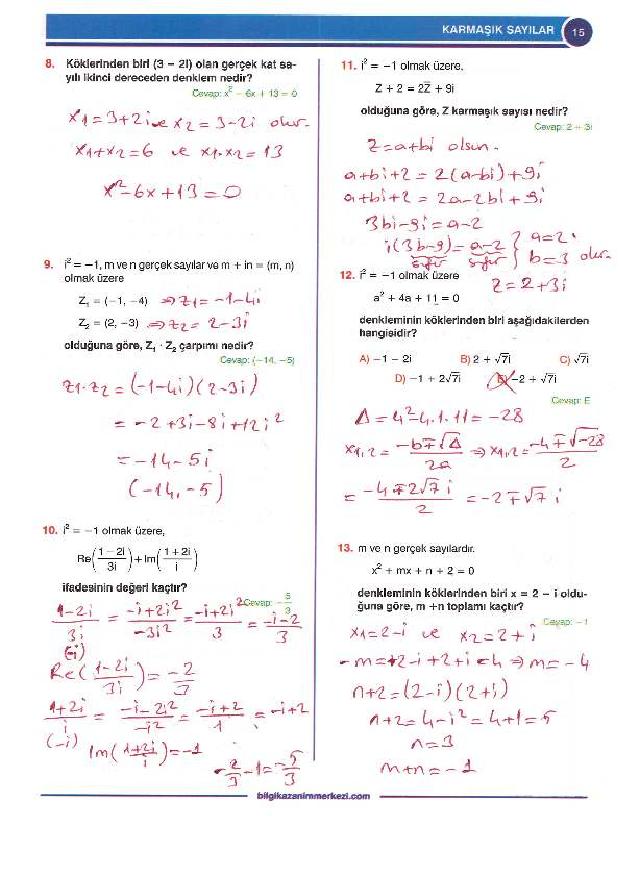 KARMAŞIK SAYILAR 15
8. Köklerinden biri (3 – 2i) olan gerçek kat sa-
yılı ikinci dereceden denklem nedir?
Cevap: x² – 6x + 13 = 0
x1 = 3+2i ve x2 = 3-2i olur.
x1+x2 = 6 ve x1.x2 = 13
x²-6x+13 = 0
9. i² = –1, m ve n gerçek sayılar ve m + in = (m, n)
olmak üzere
Z₁ = (–1, –4) ⇒ z1 = -1-4i
Z₂ = (2, –3) ⇒ z2 = 2-3i
olduğuna göre, Z₁ · Z₂ çarpımı nedir?
Cevap: (–14, –5)
z1.z2 = (-1-4i)(2-3i)
= -2+3i-8i+12i²
= -14-5i
(-14, -5)
10. i² = –1 olmak üzere,
Re((1 – 2i)/3i) + Im((1 + 2i)/i)
ifadesinin değeri kaçtır?
Cevap: –5/3
(1-2i)/3i = (-i+2i²)/-3i² = (-i+2i²)/3 = (-i-2)/3
(-i)
Re((1-2i)/3i) = -2/3
(1+2i)/i = (-i-2i²)/-i² = (-i+2)/1 = -i+2
(-i)
Im((1+2i)/i) = -1
-2/3 -1 = -5/3
11. i² = –1 olmak üzere,
Z + 2 = 2Z̅ + 9i
olduğuna göre, Z karmaşık sayısı nedir?
Cevap: 2 + 3i
Z = a+bi olsun.
a+bi+2 = 2(a-bi)+9i
a+bi+2 = 2a-2bi+9i
3bi-9i = a-2
i(3b-9) = a-2 } a=2
sıfır sıfır } b=3 olur.
Z = 2+3i
12. i² = –1 olmak üzere
a² + 4a + 11 = 0
denkleminin köklerinden biri aşağıdakilerden
hangisidir?
A) –1 – 2i B) 2 + √7i C) √7i
D) –1 + 2√7i E) –2 + √7i
Cevap: E
Δ = 4²-4.1.11 = -28
x1,2 = (-b∓√Δ)/2a ⇒ x1,2 = (-4∓√-28)/2
= (-4∓2√7 i)/2 = -2∓√7 i
13. m ve n gerçek sayılardır.
x² + mx + n + 2 = 0
denkleminin köklerinden biri x = 2 – i oldu-
ğuna göre, m +n toplamı kaçtır?
Cevap: –1
x1=2-i ve x2=2+i
-m=+2-i+2+i=4 ⇒ m=-4
n+2=(2-i)(2+i)
n+2=4-i²=4+1=5
n=3
m+n=-1
bilgikazanimmerkezi.com